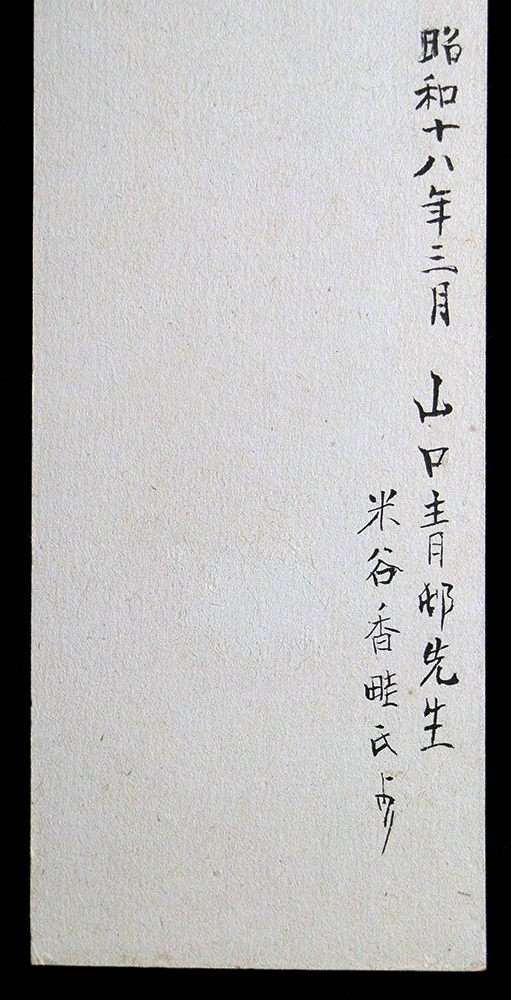 昭和十八年三月 山口青邨先生
米谷香畦氏より